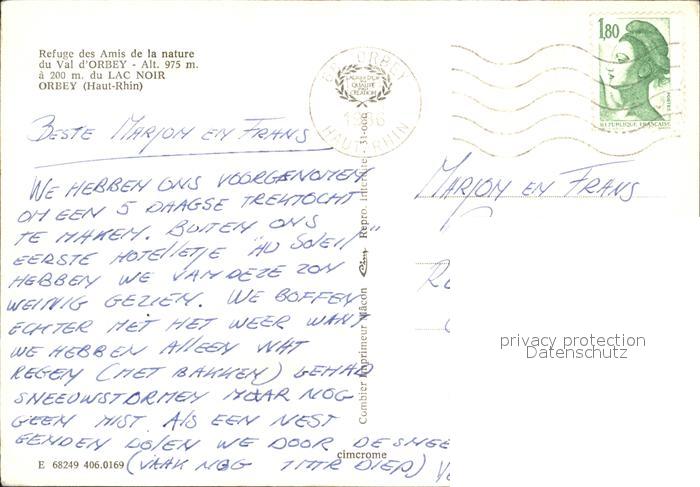 Refuge des Amis de la nature
du Val d'ORBEY - Alt. 975 m.
à 200 m. du LAC NOIR
ORBEY (Haut-Rhin)
68 ORBEY
HAUT-RHIN
1,80
POSTES
REPUBLIQUE FRANCAISE
BESTE MARJON EN FRANS
WE HEBBEN ONS VOORGENOMEN
OM EEN 5 DAAGSE TREKTOCHT
TE MAKEN. BUITEN ONS
EERSTE HOTELLETJE "AU SOLEIL"
HEBBEN WE VAN DEZE ZON
WEINIG GEZIEN. WE BOFFEN
ECHTER MET HET WEER WANT
WE HEBBEN ALLEEN WAT
REGEN (MET BAKKEN) GEHAD
SNEEUWSTORMEN MAAR NOG
GEEN MIST. ALS EEN NEST
EENDEN WE DOOR DE SNEE
(VAAK NOG 1 MTR DIEP)
Combier Imprimeur Mâcon Cim Repro. Interdite - 31-000
MARJON EN FRANS
privacy protection
Datenschutz
cimcrome
E 68249 406.0169